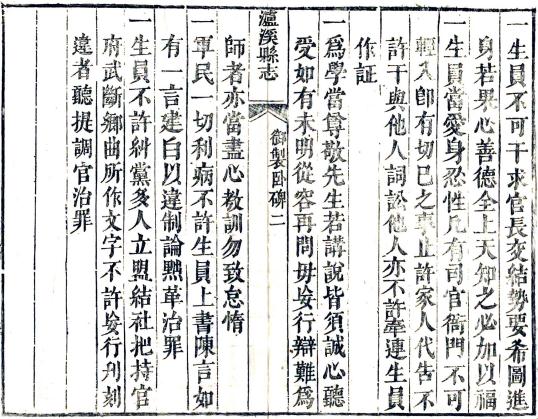 一生員不可干求官長交結勢要希圖進
身若果心善德全上天知之必加以福
一生員當愛身忍性凡有司官衙門不可
輕入卽有切已之事止許家人代告不
許干與他人詞訟他人亦不許牽連生員
作証
一爲學當尊敬先生若講說皆須誠心聽
受如有未明從容再問毋妄行辯難爲
瀘溪縣志
御製卧碑二
師者亦當盡心教訓勿致怠惰
一軍民一切利病不許生員上書陳言如
有一言建白以違制論黜革治罪
一生員不許糾黨多人立盟結社把持官
府武斷鄉曲所作文字不許妄行刋刻
違者聽提調官治罪